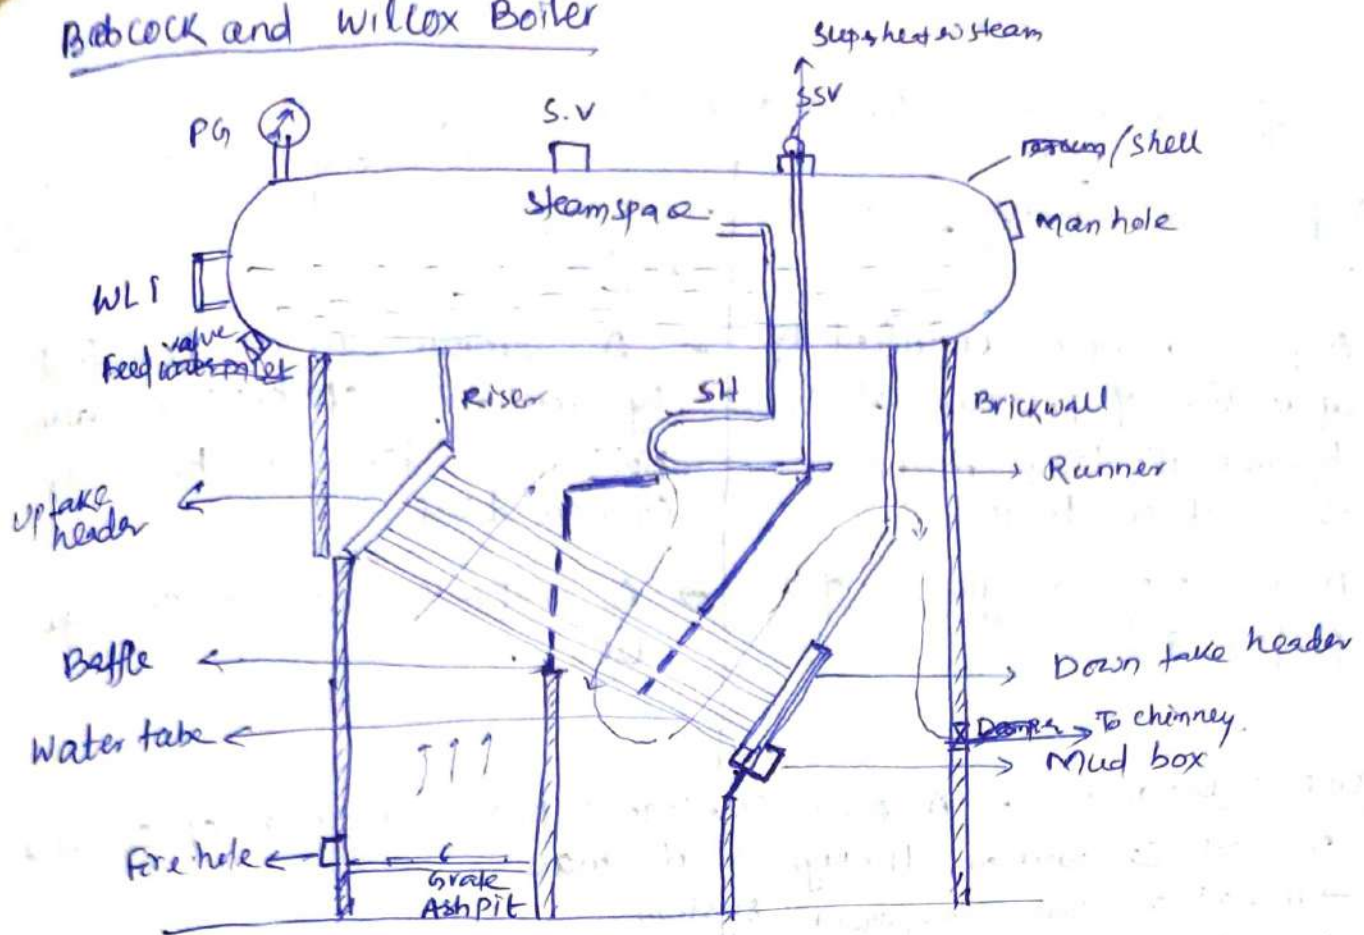 Babcock and Willcox Boiler
Superheated steam
SSV
S.V
PG
/ Shell
Man hole
Steam space
WLI
valve
Feed
Riser
SH
Brickwall
Runner
Uptake
header
Baffle
Down take header
Water tube
To chimney.
Mud box
Fire hole
Grate
Ash Pit